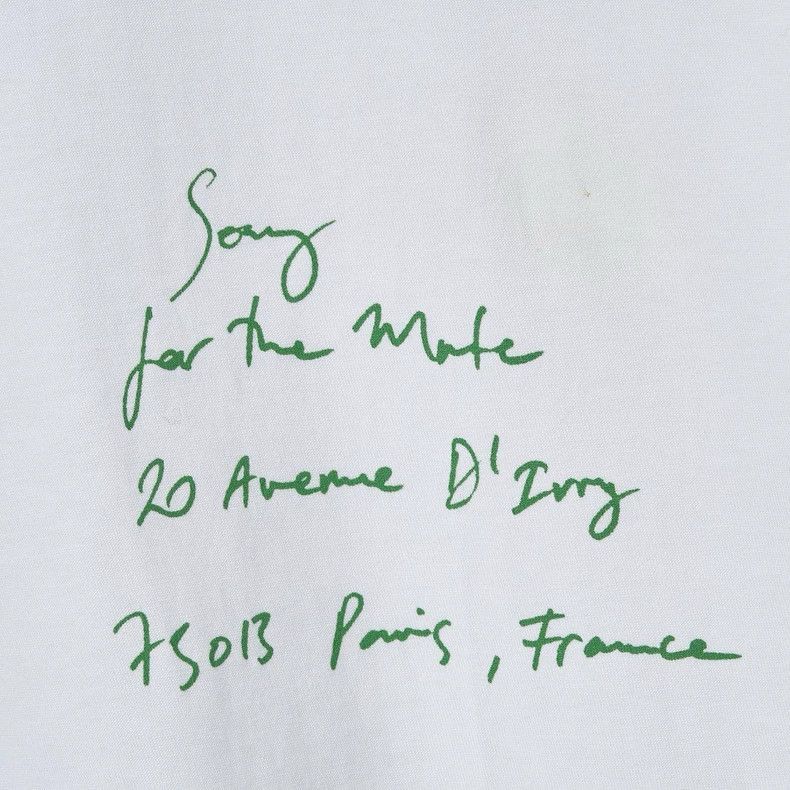 Sorry
for the Mate
20 Avenue D'Ivry
75013 Paris, France